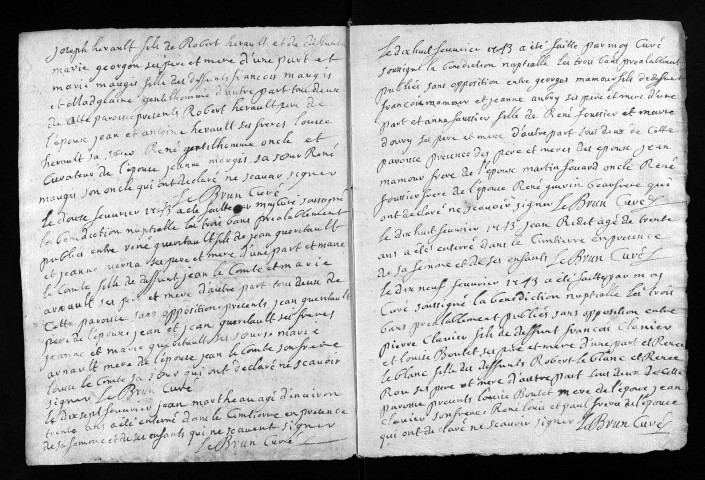 Joseph herault fils de Robert herault et de deffunte
marie georgon ses pere et mere d'une part et
marie maugis fille des deffunts francois maugis
et Magdelaine gentilhomme d'autre part tous deux
de cette paroisse presents Robert herault pere de
l'epoux jean et antoine herault ses freres louise
herault sa sœur René gentilhomme oncle et
Curateur de l'epouse jeanne maugis sa sœur René
maugis son oncle qui ont declaré ne scavoir signer
Le Brun Curé
Le douze feuvrier 1743 a eté faitte par moy Curé soussigné
la benediction nuptialle les trois bans prealablement
publiés entre rené querduault fils de jean querduault
et jeanne verna ses pere et mere d'une part et marie
le Comte fille de deffunt jean le Comte et marie
arnault ses pere et mere d'autre part tous deux de
Cette paroisse sans opposition presents jean querduault
pere de l'epoux jean et jean querduault ses freres
jeanne et marie querduault ses sœurs marie
arnault mere de l'epouse jean le Comte son frere
louise le Comte sa sœur qui ont declaré ne scavoir
signer Le Brun Curé
le dix sept feuvrier jean martheau agé d'environ
trente ans a eté enterré dans le Cimtierre en presence
de sa femme et de ses enfants qui ne scavent signer
Le Brun Curé
Le dix huit feuvrier 1743 a eté faitte par moy Curé
soussigné la benediction nuptialle les trois bans prealablement
publiés sans opposition entre georges mamour fils de deffunt
francois mamour et jeanne aubry ses pere et mere d'une
part et anne foussier fille de René foussier et marie
d'ouvry ses pere et mere d'autre part tous deux de Cette
paroisse presence des peres et meres des epoux jean
mamour frere de l'epoux martin fouard oncle René
foussier frere de l'epouse René guerin beaufrere qui
ont declaré ne scavoir signer Le Brun Curé
Le dix huit feuvrier 1743 jean Ridet agé de trente
ans a eté enterré dans le Cimtierre en presence
de sa femme et de ses enfants Le Brun Curé
Le dix neuf feuvrier 1743 a eté faitte par moy
Curé soussigné la benediction nuptialle les trois
bans prealablement publiés sans opposition entre
pierre Clavier fils de deffunt francois Clavier
et louise Boutet ses pere et mere d'une part et Renée
le blanc fille des deffunts Robert le blanc et Renée
Rou ses pere et mere d'autre part tous deux de Cette
paroisse presents louise Boutet mere de l'epoux jean
Clavier son frere René louis et paul freres de l'epouse
qui ont declaré ne scavoir signer Le Brun Curé